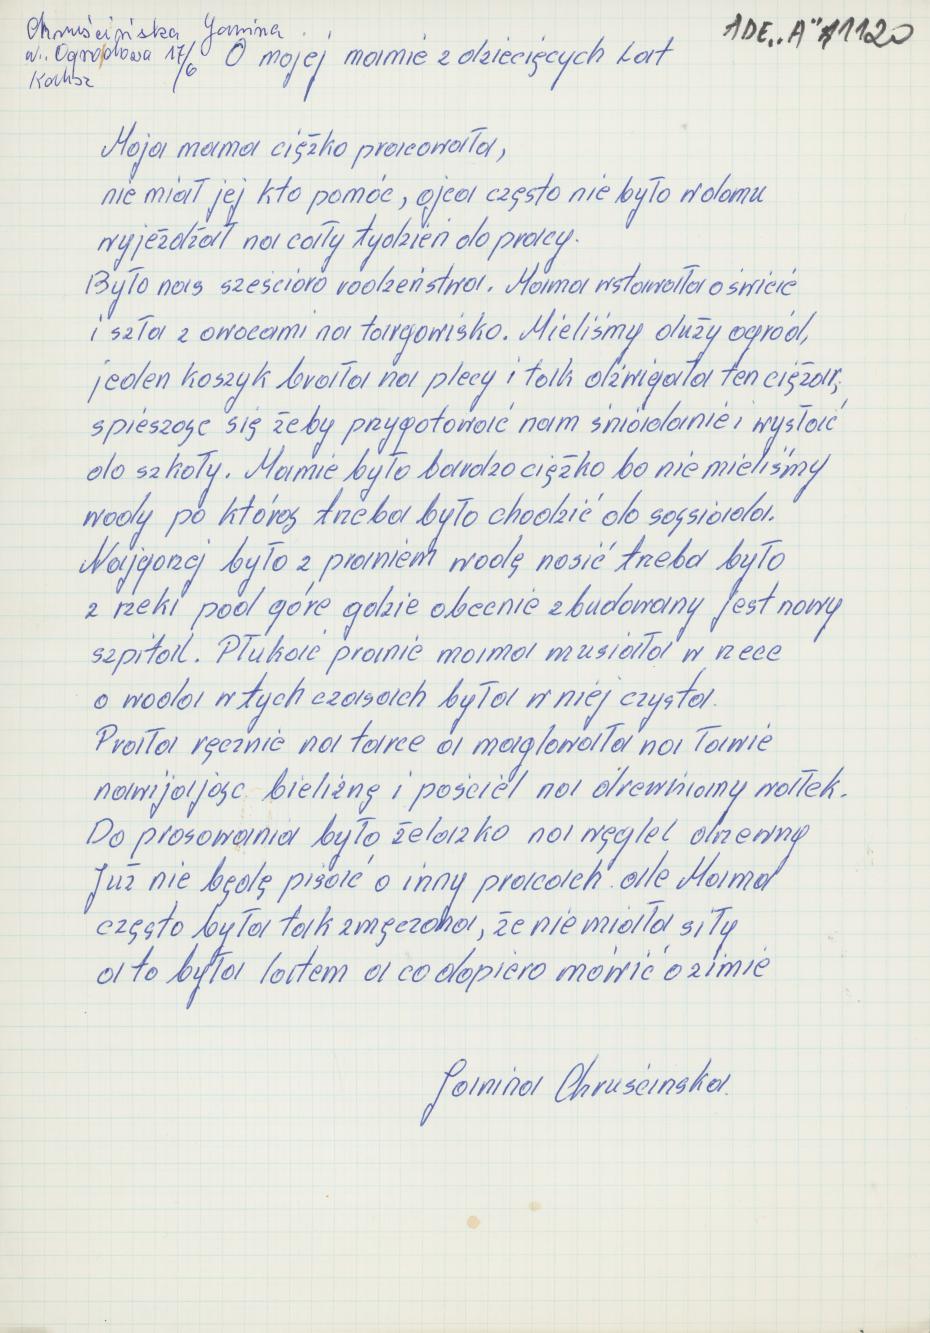 Chruścińska Janina
ul. Ogrodowa 17/6
Kalisz
ADE "A" 11120
O mojej mamie z dziecięcych Lat
Moja mama ciężko pracowała,
nie miał jej kto pomóc, ojca często nie było w domu
wyjeżdżał na cały tydzień do pracy.
Było nas sześcioro rodzeństwa. Mama wstawała o świcie
i szła z owocami na targowisko. Mieliśmy duży ogród,
jeden koszyk brała na plecy i tak dźwigała ten ciężar,
spiesząc się żeby przygotować nam śniadanie i wysłać
do szkoły. Mamie było bardzo ciężko bo nie mieliśmy
wody po którą trzeba było chodzić do sąsiada.
Najgorzej było z praniem wodę nosić trzeba było
z rzeki pod górę gdzie obecnie zbudowany jest nowy
szpital. Płukać pranie mama musiała w rzece
a woda w tych czasach była w niej czysta.
Prała ręcznie na tarce a maglowała na ławie
nawijając bieliznę i pościel na drewniany wałek.
Do prasowania było żelazko na węgiel drzewny
Już nie będę pisać o inny pracach ale Mama
często była tak zmęczona, że nie miała siły
a to była latem a co dopiero mówić o zimie
Janina Chruścinska.